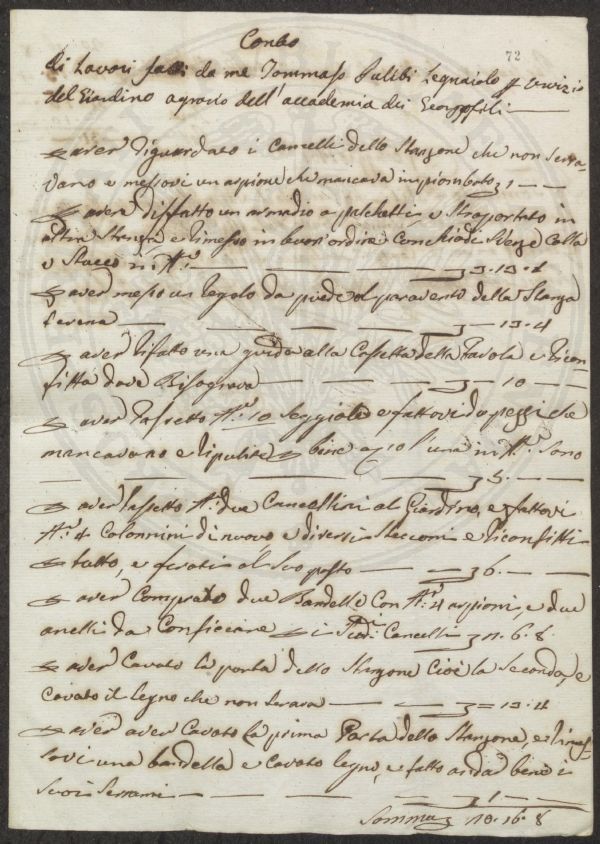 Conto
72
di Lavori fatti da me Tommaso Legnaiolo p servizio
del Giardino agrario dell'accademia dei Georgofili
p aver riguardato i Cancelli dello Stanzone che non serra-
vano e messovi un arpione che mancava impiombato £ 1 — —
p aver disfatto un armadio a palchetti, e straportato in
altra Stanza e rimesso in buon ordine con chiodi Colla
e Stucco in tt.o
p aver messo un regolo da piede al paravento della Stanza
terrena — £ — 13. 4
p aver rifatto una guida alla Cassetta della Tavola e ricon-
fitta dove Bisognava — £ — 10 —
p aver rassetto N.o 10 Seggiole e fattovi da pezzi che
mancavano e ripulite bene a 10 l'una in tt.o Sono
£ 5. —
p aver rassetto N. due Cancellini al Giardino, e fattovi
N.o 4 Colonnini di nuovo, e diversi Staccioni e riconfitti
tutto, e ferati al suo posto — £ 6. —
p aver Comprato due Bandelle Con N.o 4 arpioni, e due
anelli da Conficcare p i Sud.i Cancelli £ 1. 6. 8
p aver Cavato la porta dello Stanzone Cioè la Seconda, e
Cavato il legno che non serava — £ — 13. 4
p aver aver Cavato la prima Porta dello Stanzone, e rimes-
sovi una bandella e Cavato legno, e fatto andar bene i
Suoi Serrami — £ 1 —
Somma £ 18. 16. 8